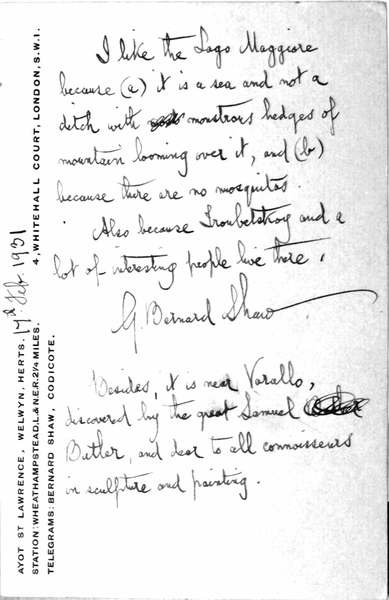 I like the Lago Maggiore
because (a) it is a sea and not a
ditch with monstrous hedges of
mountain looming over it, and (b)
because there are no mosquitos.
Also because Troubetskoy and a
lot of interesting people live there.
G. Bernard Shaw
Besides, it is near Varallo,
discovered by the great Samuel
Butler, and dear to all connoisseurs
in sculpture and painting.
4, WHITEHALL COURT, LONDON, S.W.1.
17th Feb. 1931
AYOT ST LAWRENCE, WELWYN, HERTS.
STATION: WHEATHAMPSTEAD, L. & N.E.R. 2¼ MILES.
TELEGRAMS: BERNARD SHAW, CODICOTE.